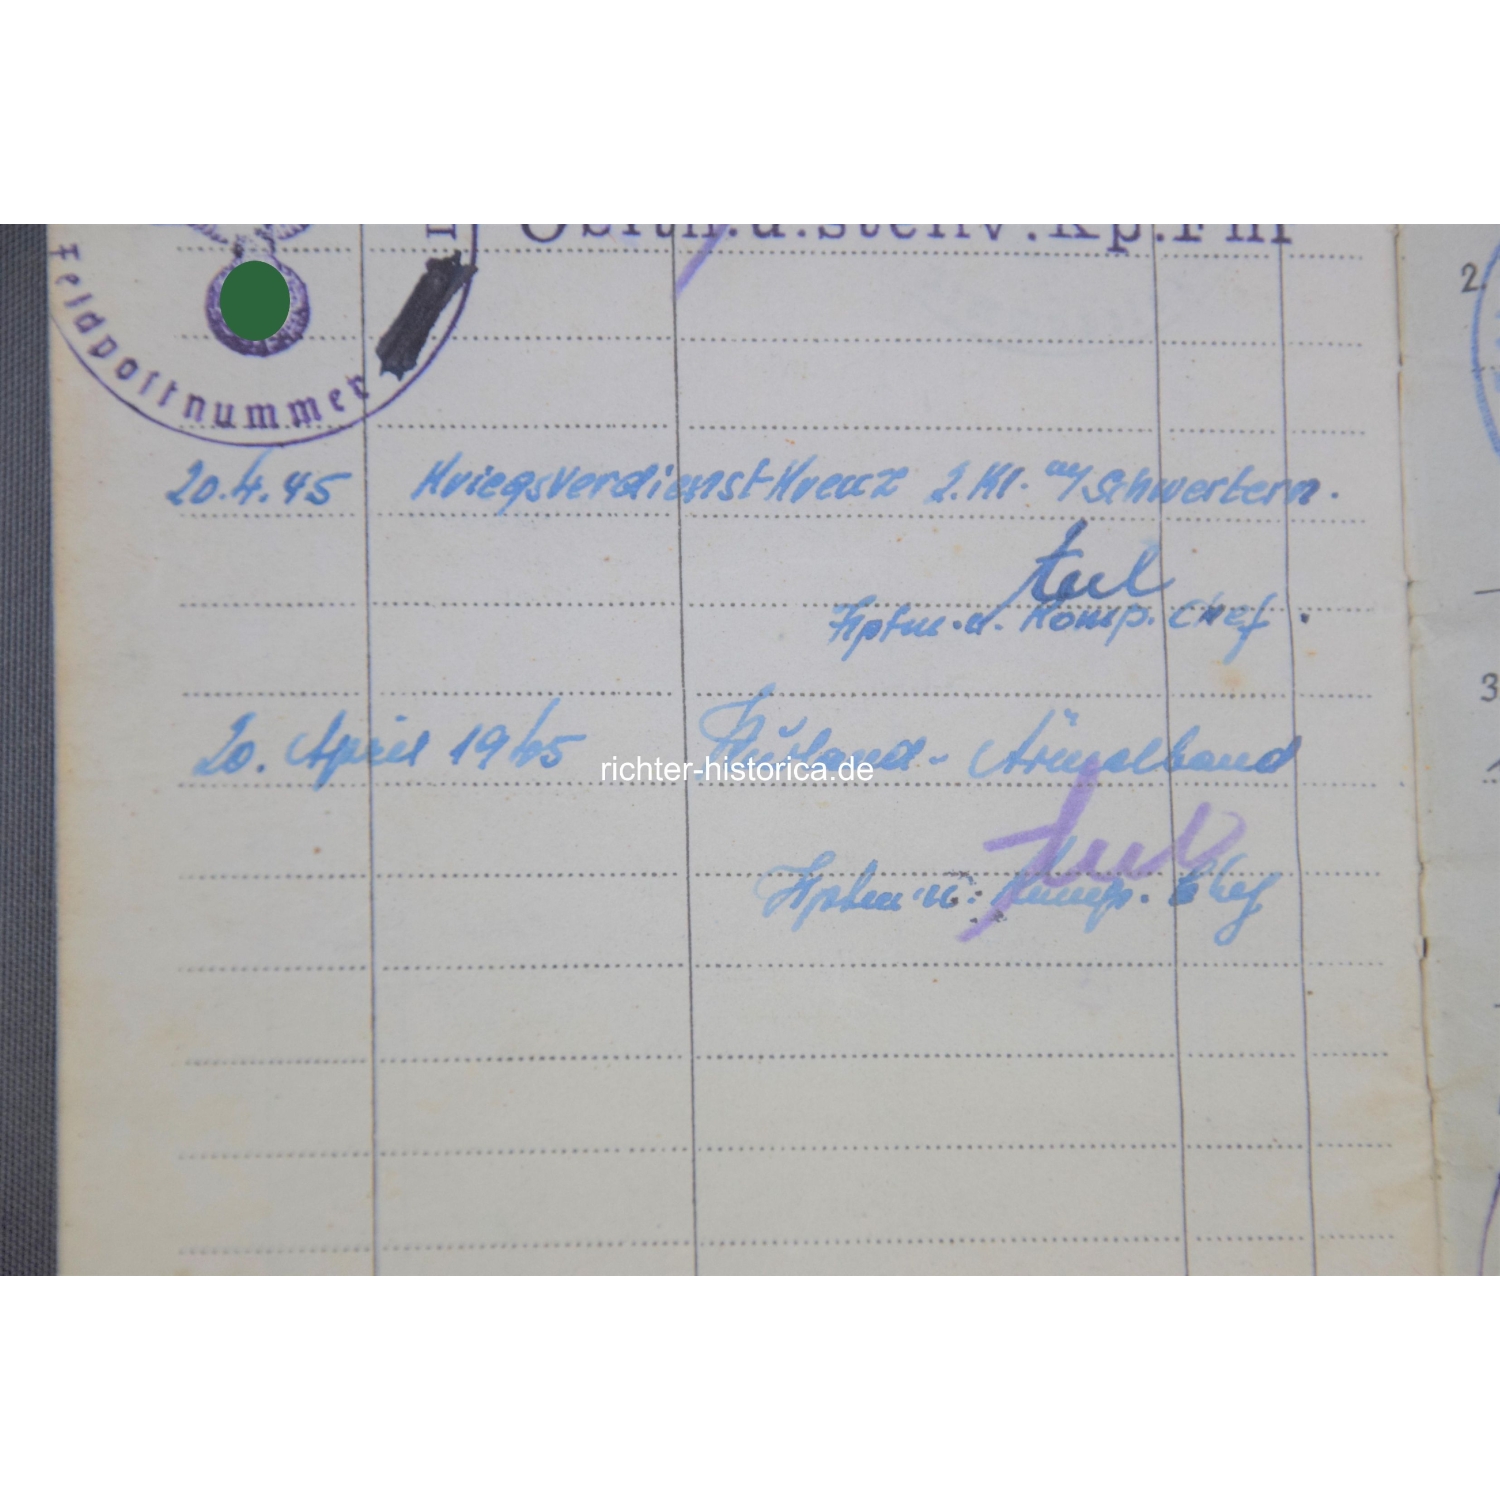 Obltn.u.stellv.Kp.Fhr
Feldpostnummer
2.
20.4.45 Kriegsverdienst-Kreuz 2.Kl. m/Schwertern.
Hptm.u. Komp. Chef.
3
20. April 1945 Kurland-Ärmelband
richter-historica.de
Hptm u. Komp. Chef